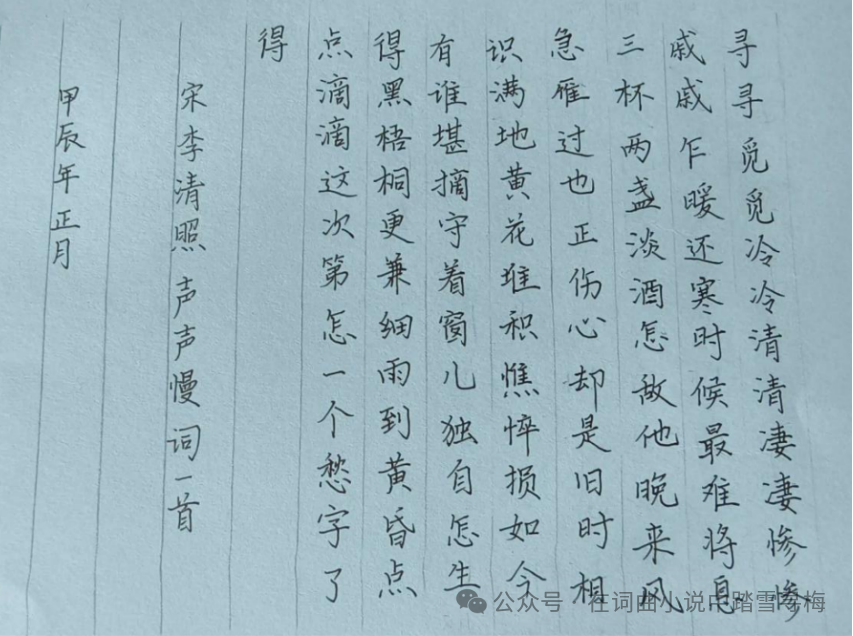 寻寻觅觅冷冷清清凄凄惨惨
戚戚乍暖还寒时候最难将息
三杯两盏淡酒怎敌他晚来风
急雁过也正伤心却是旧时相
识满地黄花堆积憔悴损如今
有谁堪摘守着窗儿独自怎生
得黑梧桐更兼细雨到黄昏点
点滴滴这次第怎一个愁字了
得
宋李清照声声慢词一首
甲辰年正月
公众号 在词曲小说中踏雪寻梅